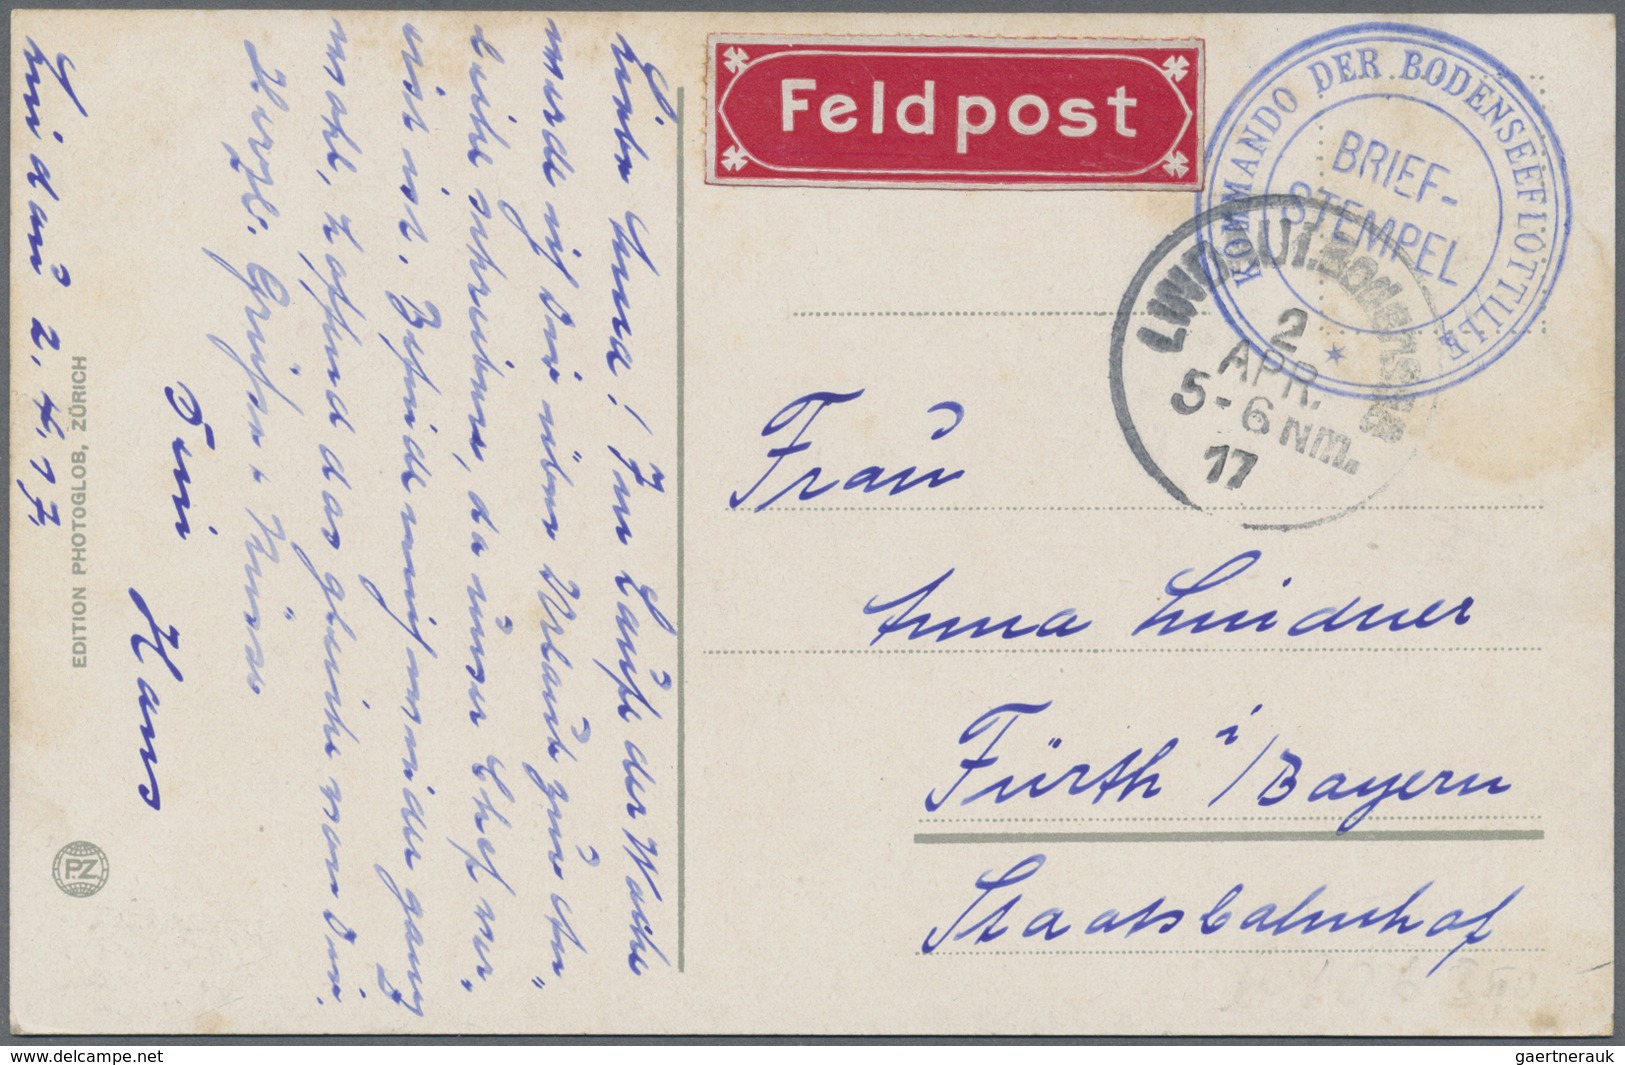 Liebe Anna! Im Laufe der Woche
werde ich Dir über Urlaub zurück
schreiben, da unser Chef ver-
reist ist. Befinde mich wieder ganz
wohl, hoffend das gleiche von Dir.
Herzl. Grüße u. Küsse
Dein
Hans
Lindau 2.4.17.
EDITION PHOTOGLOB, ZÜRICH
P.Z
Feldpost
KOMMANDO DER BODENSEEFLOTTILLE
BRIEF-
STEMPEL
LINDAU i.Bodensee
2
APR.
5-6 NM.
17
Frau
Anna Lindner
Fürth i/Bayern
Staatsbahnhof
gaertnerauk
www.delcampe.net